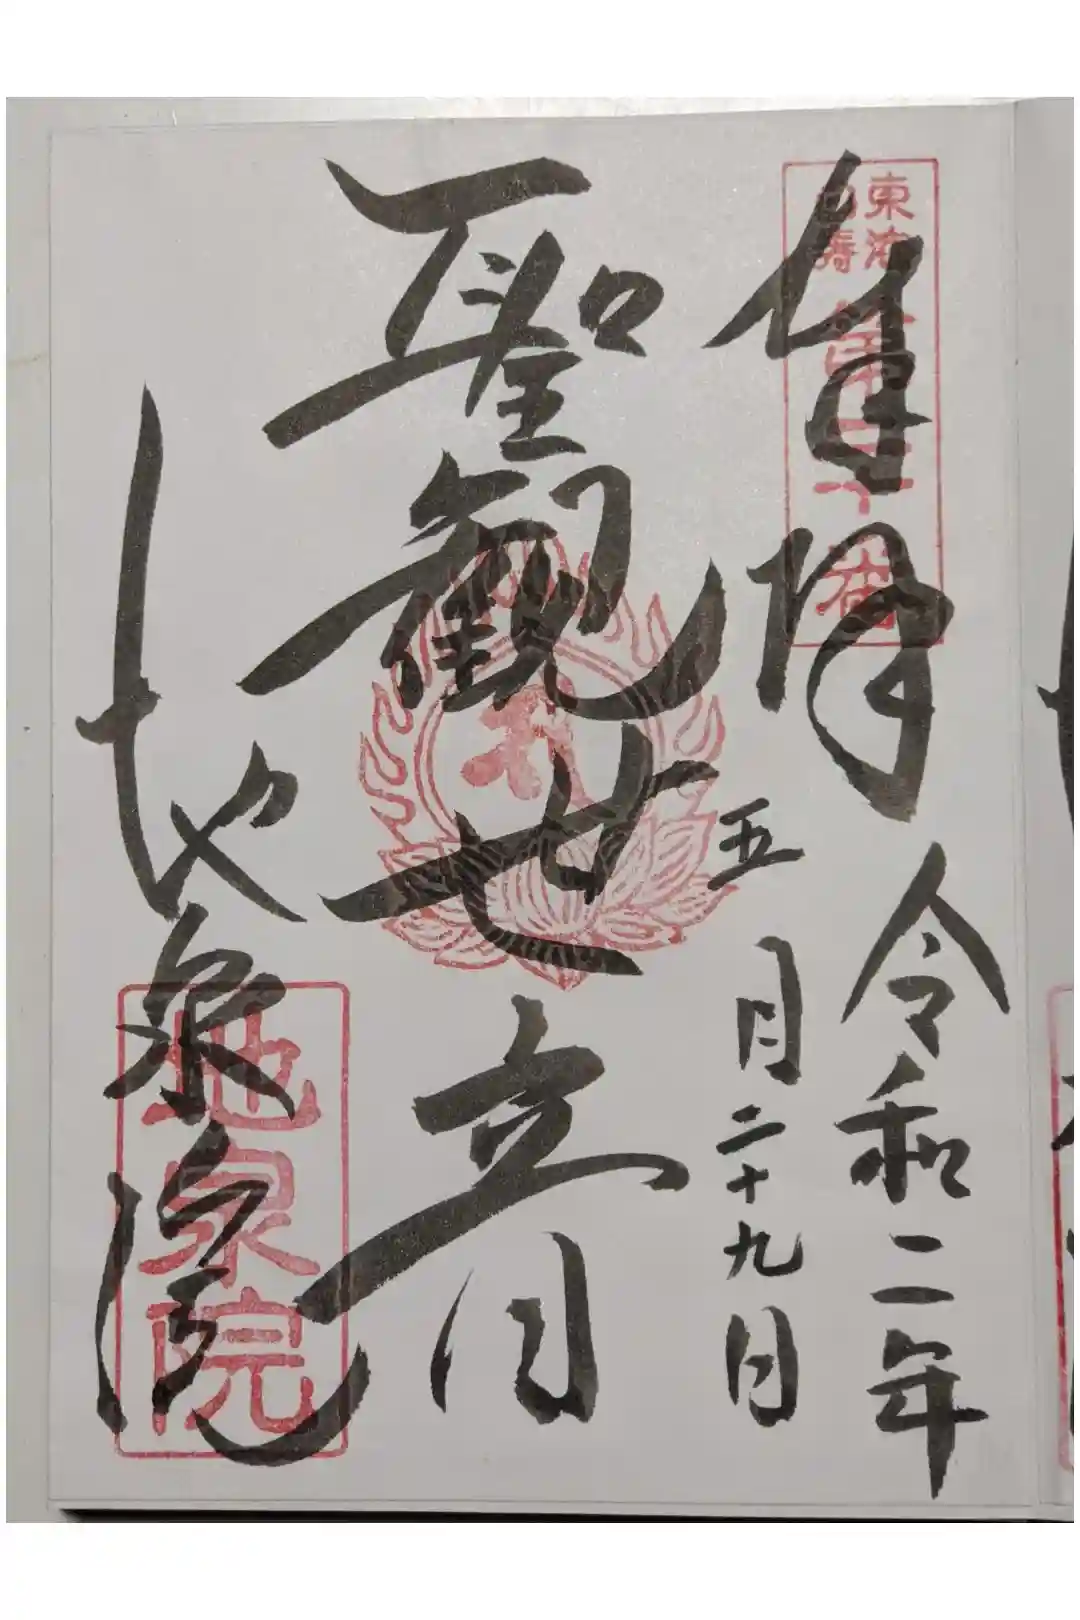 東海
白壽
奉拝
令和二年
五月二十九日
聖観世音
地泉院
地泉院